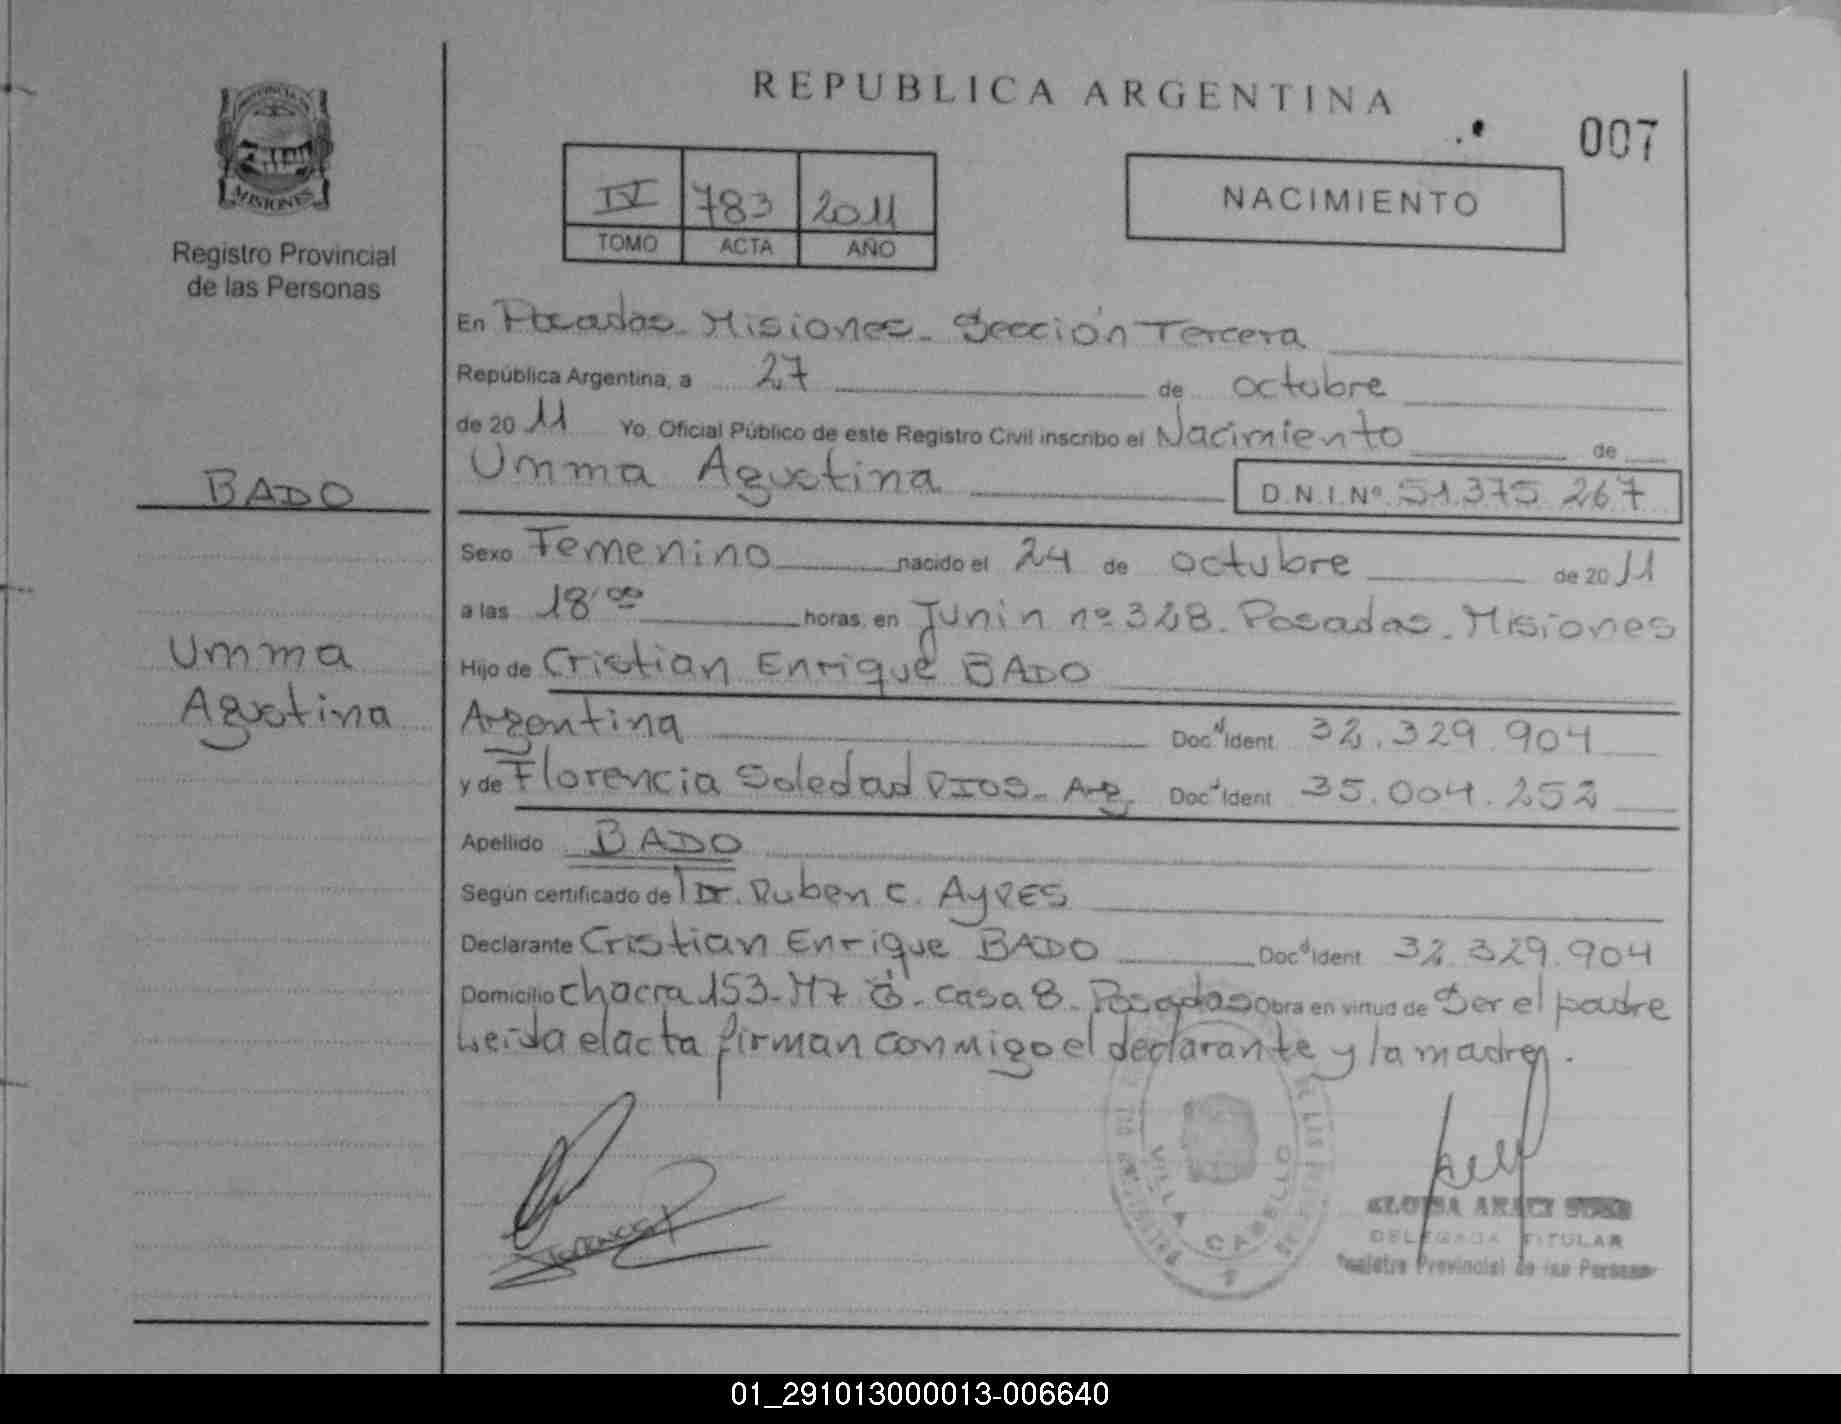 REPUBLICA ARGENTINA
007
PROVINCIA DE
MISIONES
Registro Provincial
de las Personas
IV 783 2011
TOMO ACTA AÑO
NACIMIENTO
En Posadas - Misiones - Sección Tercera
República Argentina, a 27 de octubre
de 20 11 Yo, Oficial Público de este Registro Civil inscribo el Nacimiento de
Umma Agustina D.N.I.Nº 51.375.267
BADO
Sexo Femenino nacido el 24 de octubre de 20 11
a las 18:00 horas, en Junín nº 328. Posadas. Misiones
Umma
Agustina
Hijo de Cristian Enrique BADO
Argentina Doc. Ident 32.329.904
y de Florencia Soledad RIOS - Arg. Doc. Ident 35.004.252
Apellido BADO
Según certificado de Dr. Ruben C. AyRES
Declarante Cristian Enrique BADO Doc. Ident 32.329.904
Domicilio chacra 153 - M7 - casa 8 - Posadas Obra en virtud de Ser el padre
Leída el acta firman conmigo el declarante y la madre.
VILLA CABELLO
DELEGADA TITULAR
Registro Provincial de las Personas
01_291013000013-006640